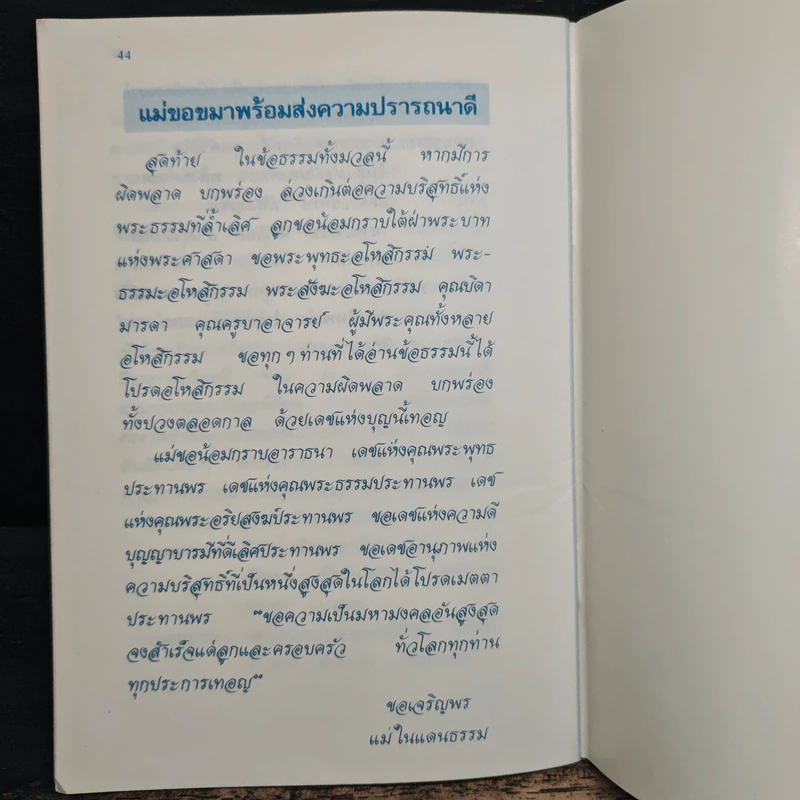 44
แม่ขอขมาพร้อมส่งความปรารถนาดี
สุดท้าย ในข้อธรรมทั้งมวลนี้ หากมีการ
ผิดพลาด บกพร่อง ล่วงเกินต่อความบริสุทธิ์แห่ง
พระธรรมที่ล้ำเลิศ ลูกขอน้อมกราบใต้ฝ่าพระบาท
แห่งพระศาสดา ขอพระพุทธะอโหสิกรรม พระ-
ธรรมะอโหสิกรรม พระสังฆะอโหสิกรรม คุณบิดา
มารดา คุณครูบาอาจารย์ ผู้มีพระคุณทั้งหลาย
อโหสิกรรม ขอทุกๆท่านที่ได้อ่านข้อธรรมนี้ได้
โปรดอโหสิกรรม ในความผิดพลาด บกพร่อง
ทั้งปวงตลอดกาล ด้วยเดชแห่งบุญนี้เทอญ
แม่ขอน้อมกราบอาราธนา เดชแห่งคุณพระพุทธ
ประทานพร เดชแห่งคุณพระธรรมประทานพร เดช
แห่งคุณพระอริยสงฆ์ประทานพร ขอเดชแห่งความดี
บุญญาบารมีที่ดีเลิศประทานพร ขอเดชอานุภาพแห่ง
ความบริสุทธิ์ที่เป็นหนึ่งสูงสุดในโลกได้โปรดเมตตา
ประทานพร "ขอความเป็นมหามงคลอันสูงสุด
จงสำเร็จแด่ลูกและครอบครัว ทั่วโลกทุกท่าน
ทุกประการเทอญ"
ขอเจริญพร
แม่ในแดนธรรม